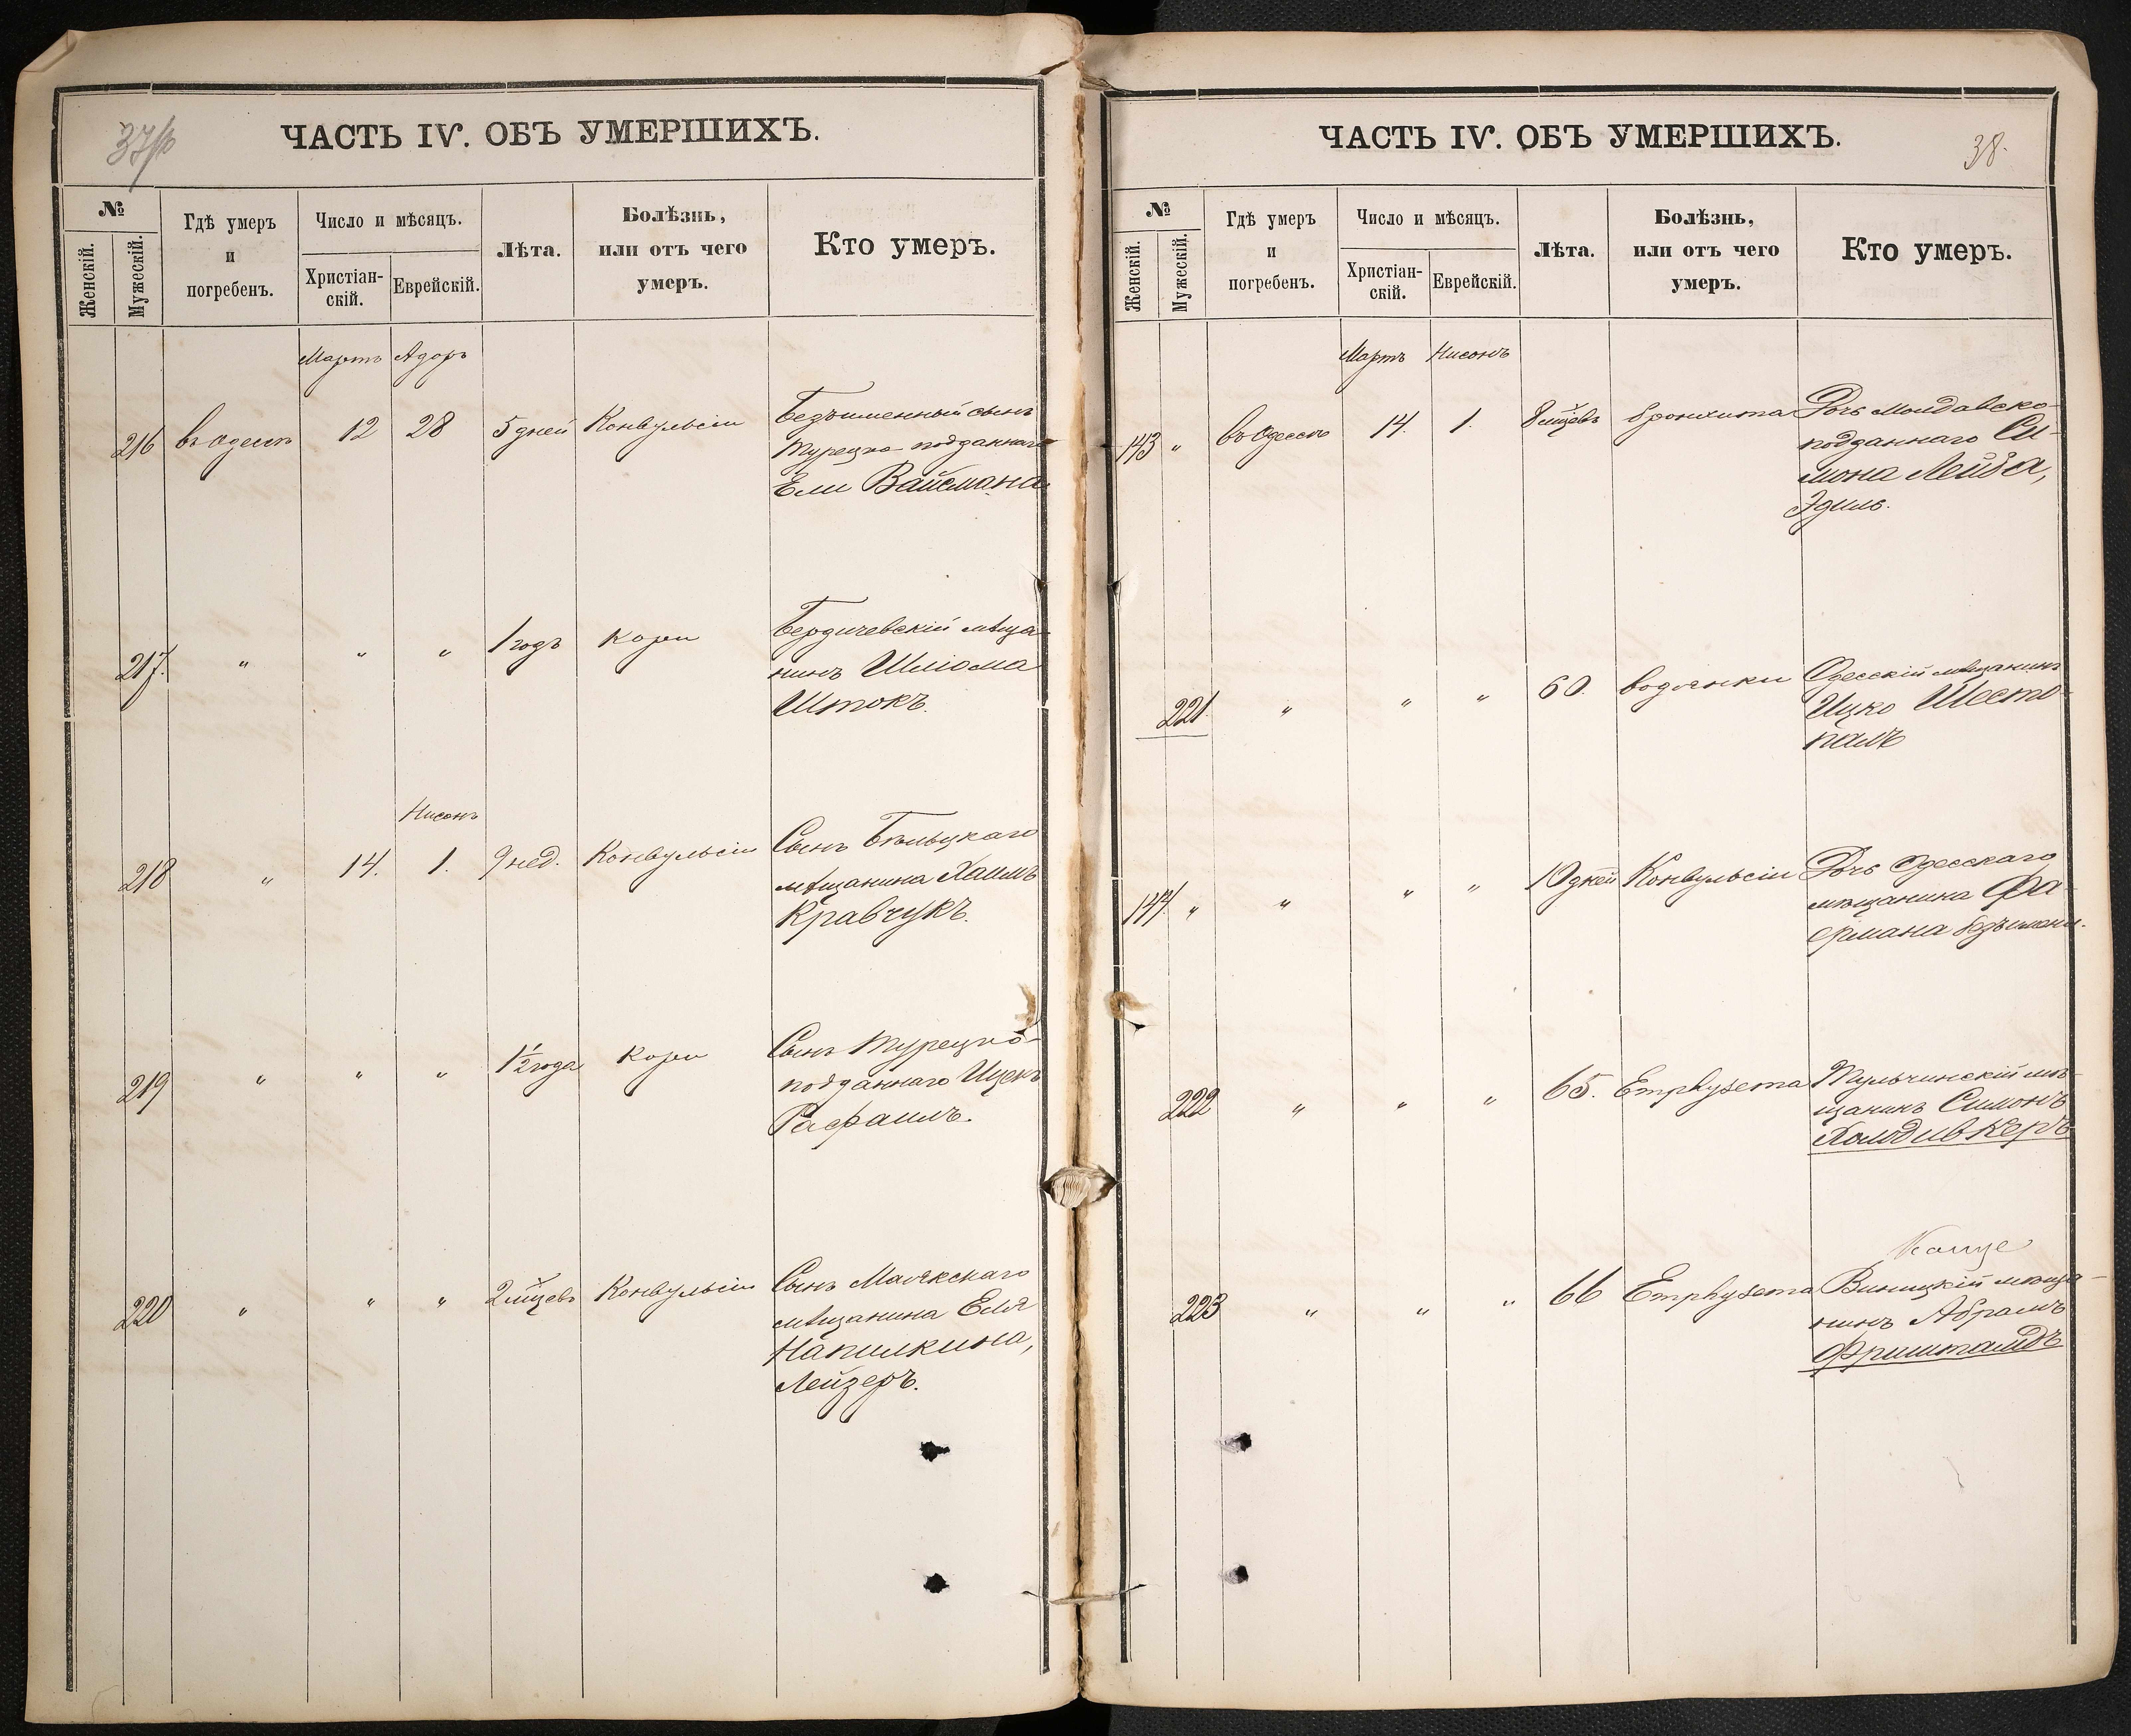 37/
ЧАСТЬ IV. ОБЪ УМЕРШИХЪ.
№
Женскій.
Мужескій.
Гдѣ умеръ
и
погребенъ.
Число и мѣсяцъ.
Христіан-
скій.
Еврейскій.
Лѣта.
Болѣзнь,
или отъ чего
умеръ.
Кто умеръ.
Мартъ Адоръ
216 въ Одессѣ 12 28 5 дней Конвульсіи Безъименный сынъ
Турецко-подданнаго
Ели Вайсмана
217. " " " 1 годъ кори Бердичевскій мѣща-
нинъ Шліома
Штокъ.
Нисонъ
218 " 14. 1. 9 нед. Конвульсіи Сынъ Бѣльцкаго
мѣщанина Хаимъ
Кравчукъ.
219 " " " 1½ года кори Сынъ Турецко-
подданнаго Ицекъ
Рафаилъ.
220 " " " 2 мцевъ Конвульсіи Сынъ Маякскаго
мѣщанина Еля
Напилкина,
Лейзеръ.
38.
ЧАСТЬ IV. ОБЪ УМЕРШИХЪ.
№
Женскій.
Мужескій.
Гдѣ умеръ
и
погребенъ.
Число и мѣсяцъ.
Христіан-
скій.
Еврейскій.
Лѣта.
Болѣзнь,
или отъ чего
умеръ.
Кто умеръ.
Мартъ Нисонъ
143 " въ Одессѣ 14. 1. 8 мцевъ бронхита Дочь Молдавско-
подданнаго Си-
мона Лейба,
Эдиль.
221. " " " 60. водянки Одесскій мѣщанинъ
Ицко Шесто-
палъ
144. " " " " 10 дней Конвульсіи Дочь Одесскаго
мѣщанина Фа-
ермана безъимен.
222 " " " 65. Emphysema Тульчинскій мѣ-
щанинъ Симонъ
Холодивкеръ
223 " " " 66 Emphysema Виницкій мѣща-
нинъ Абрамъ
Фришталдъ